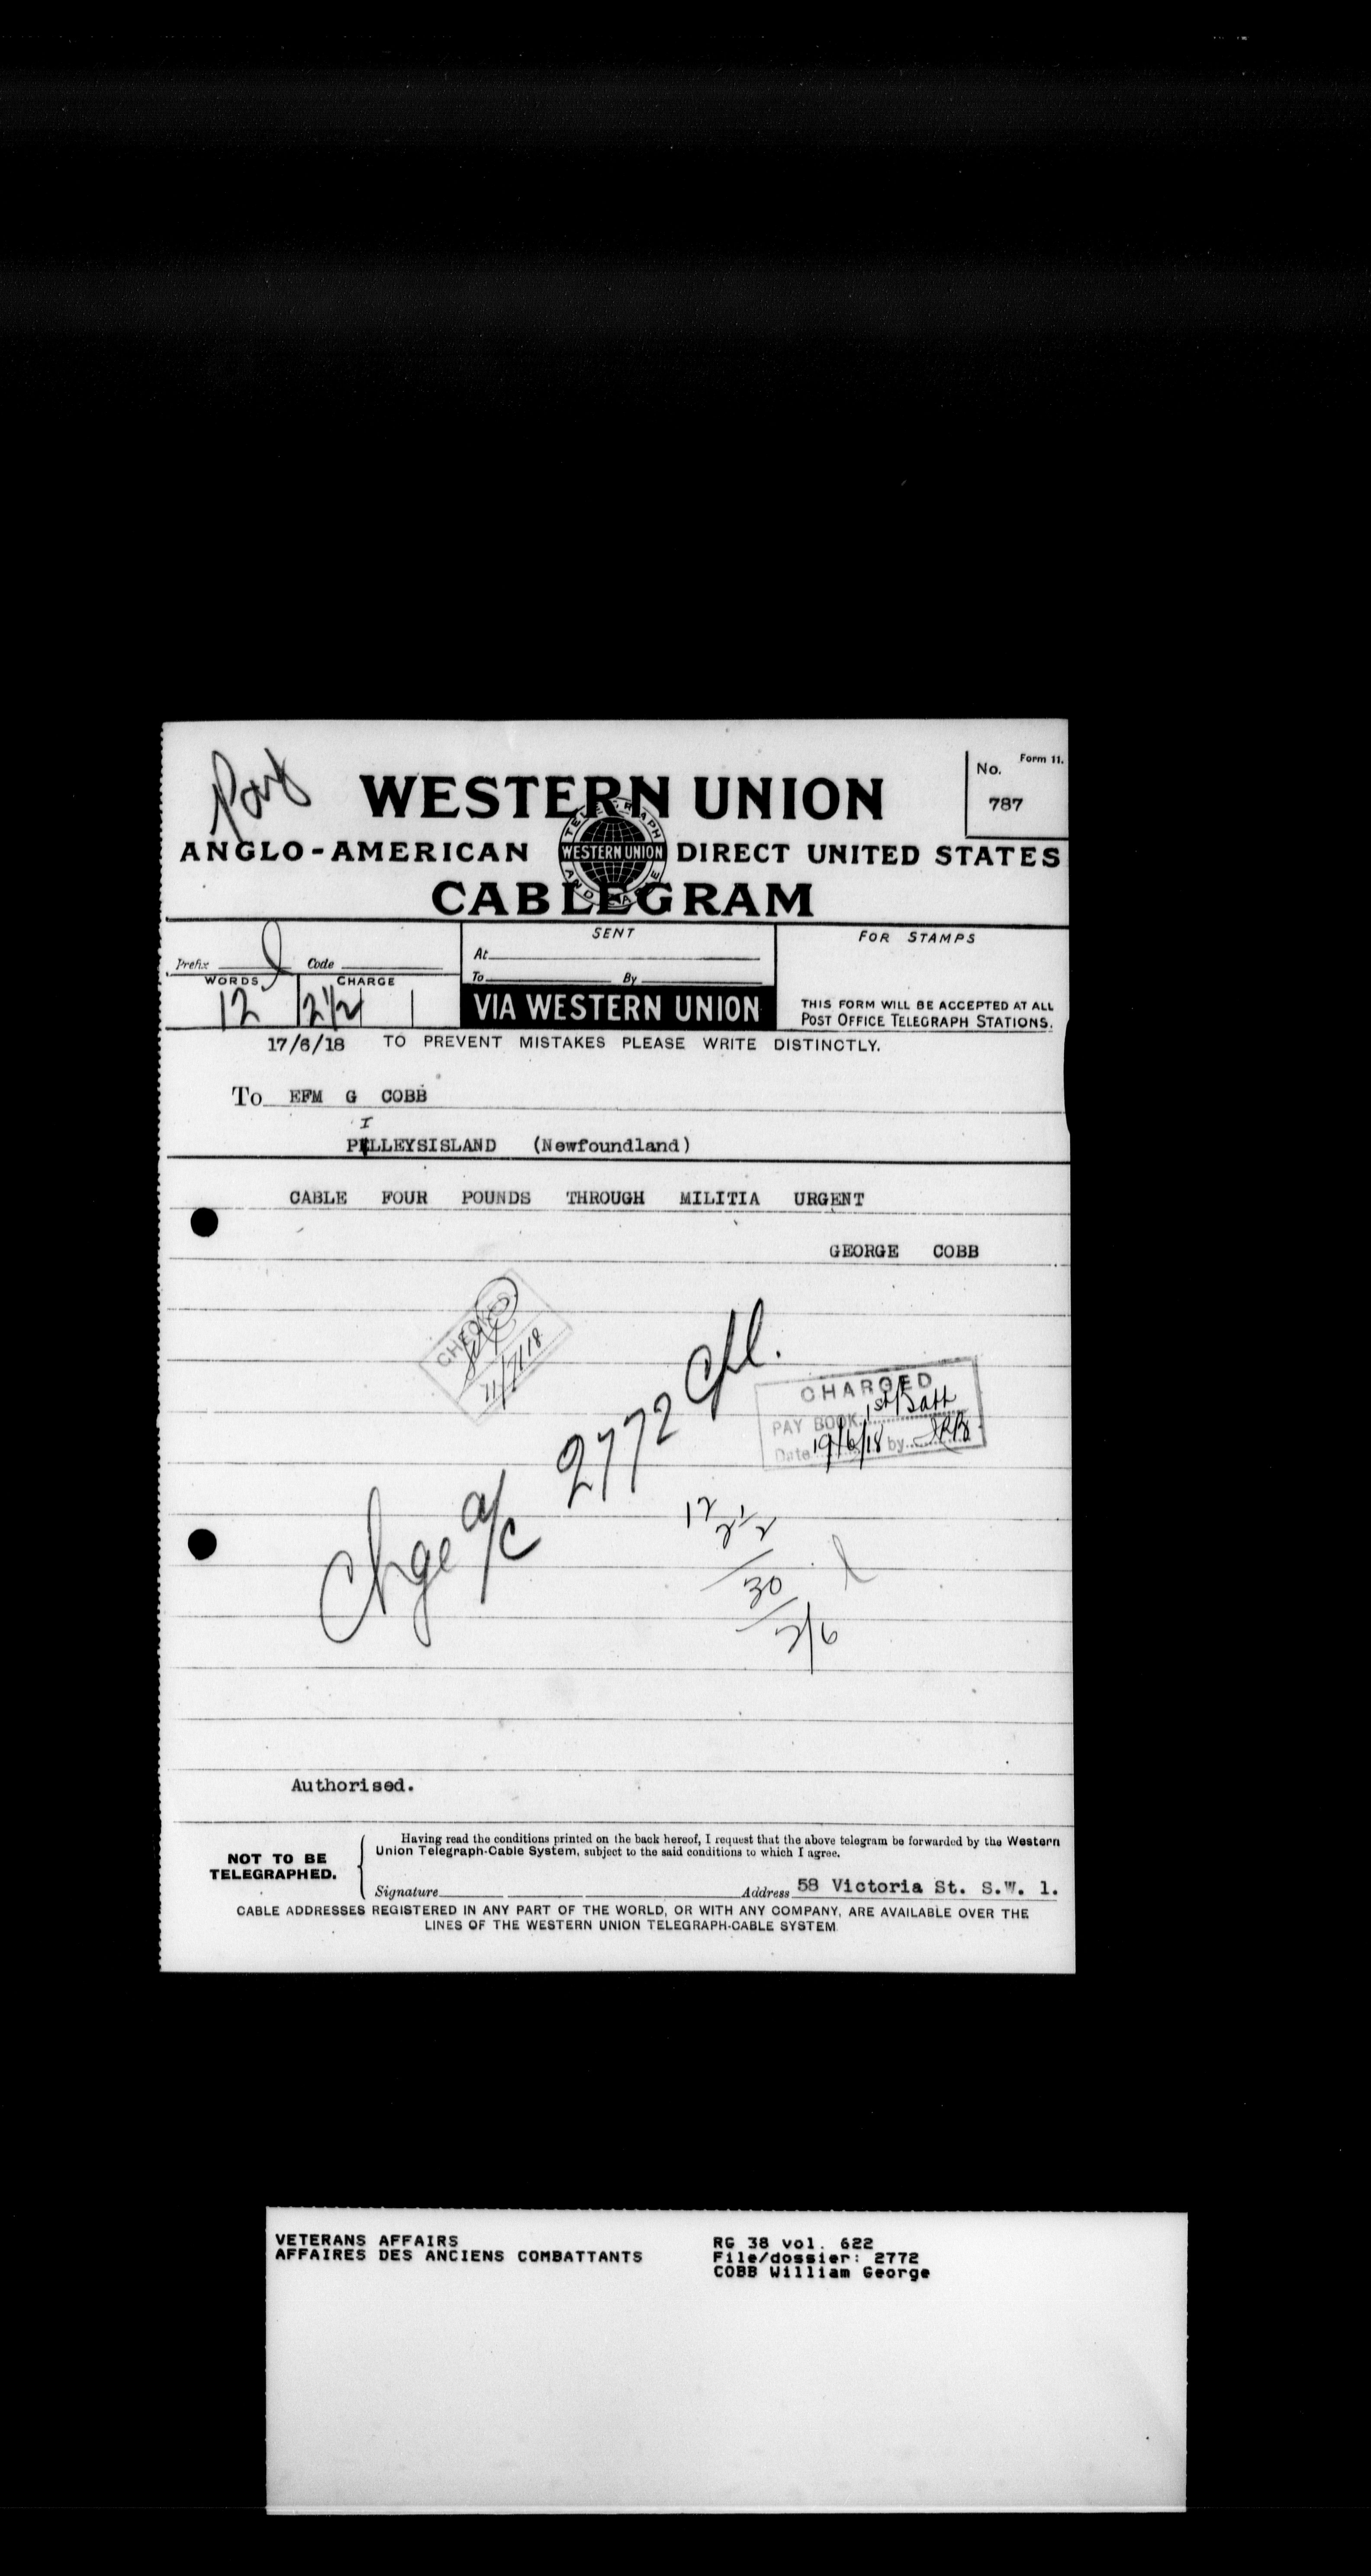 Form 11.
No.
787
WESTERN UNION
ANGLO-AMERICAN DIRECT UNITED STATES
TELEGRAPH AND CABLE
WESTERN UNION
CABLEGRAM
Prefix Code
WORDS CHARGE
12 2½
SENT
At
To By
VIA WESTERN UNION
FOR STAMPS
THIS FORM WILL BE ACCEPTED AT ALL
POST OFFICE TELEGRAPH STATIONS.
17/6/18 TO PREVENT MISTAKES PLEASE WRITE DISTINCTLY.
To EFM G COBB
PILLEYSISLAND (Newfoundland)
CABLE FOUR POUNDS THROUGH MILITIA URGENT
GEORGE COBB
CHECKED
11/7/18
Chge a/c 2772 Cpl.
CHARGED
PAY BOOK 1st Batt
Date 19/6/18 by
12
2½
30
2/6
Authorised.
NOT TO BE
TELEGRAPHED.
Having read the conditions printed on the back hereof, I request that the above telegram be forwarded by the Western
Union Telegraph-Cable System, subject to the said conditions to which I agree.
Signature Address 58 Victoria St. S.W. 1.
CABLE ADDRESSES REGISTERED IN ANY PART OF THE WORLD, OR WITH ANY COMPANY, ARE AVAILABLE OVER THE
LINES OF THE WESTERN UNION TELEGRAPH-CABLE SYSTEM
VETERANS AFFAIRS
AFFAIRES DES ANCIENS COMBATTANTS
RG 38 vol. 622
File/dossier: 2772
COBB William George